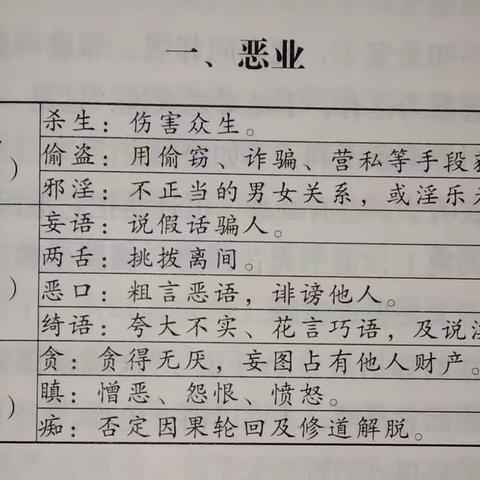 一、恶业
杀生：伤害众生。
偷盗：用偷窃、诈骗、营私等手段
邪淫：不正当的男女关系，或淫乐
妄语：说假话骗人。
两舌：挑拨离间。
）
恶口：粗言恶语，诽谤他人。
绮语：夸大不实、花言巧语，及说
贪：贪得无厌，妄图占有他人财产。
）
瞋：憎恶、怨恨、愤怒。
痴：否定因果轮回及修道解脱。